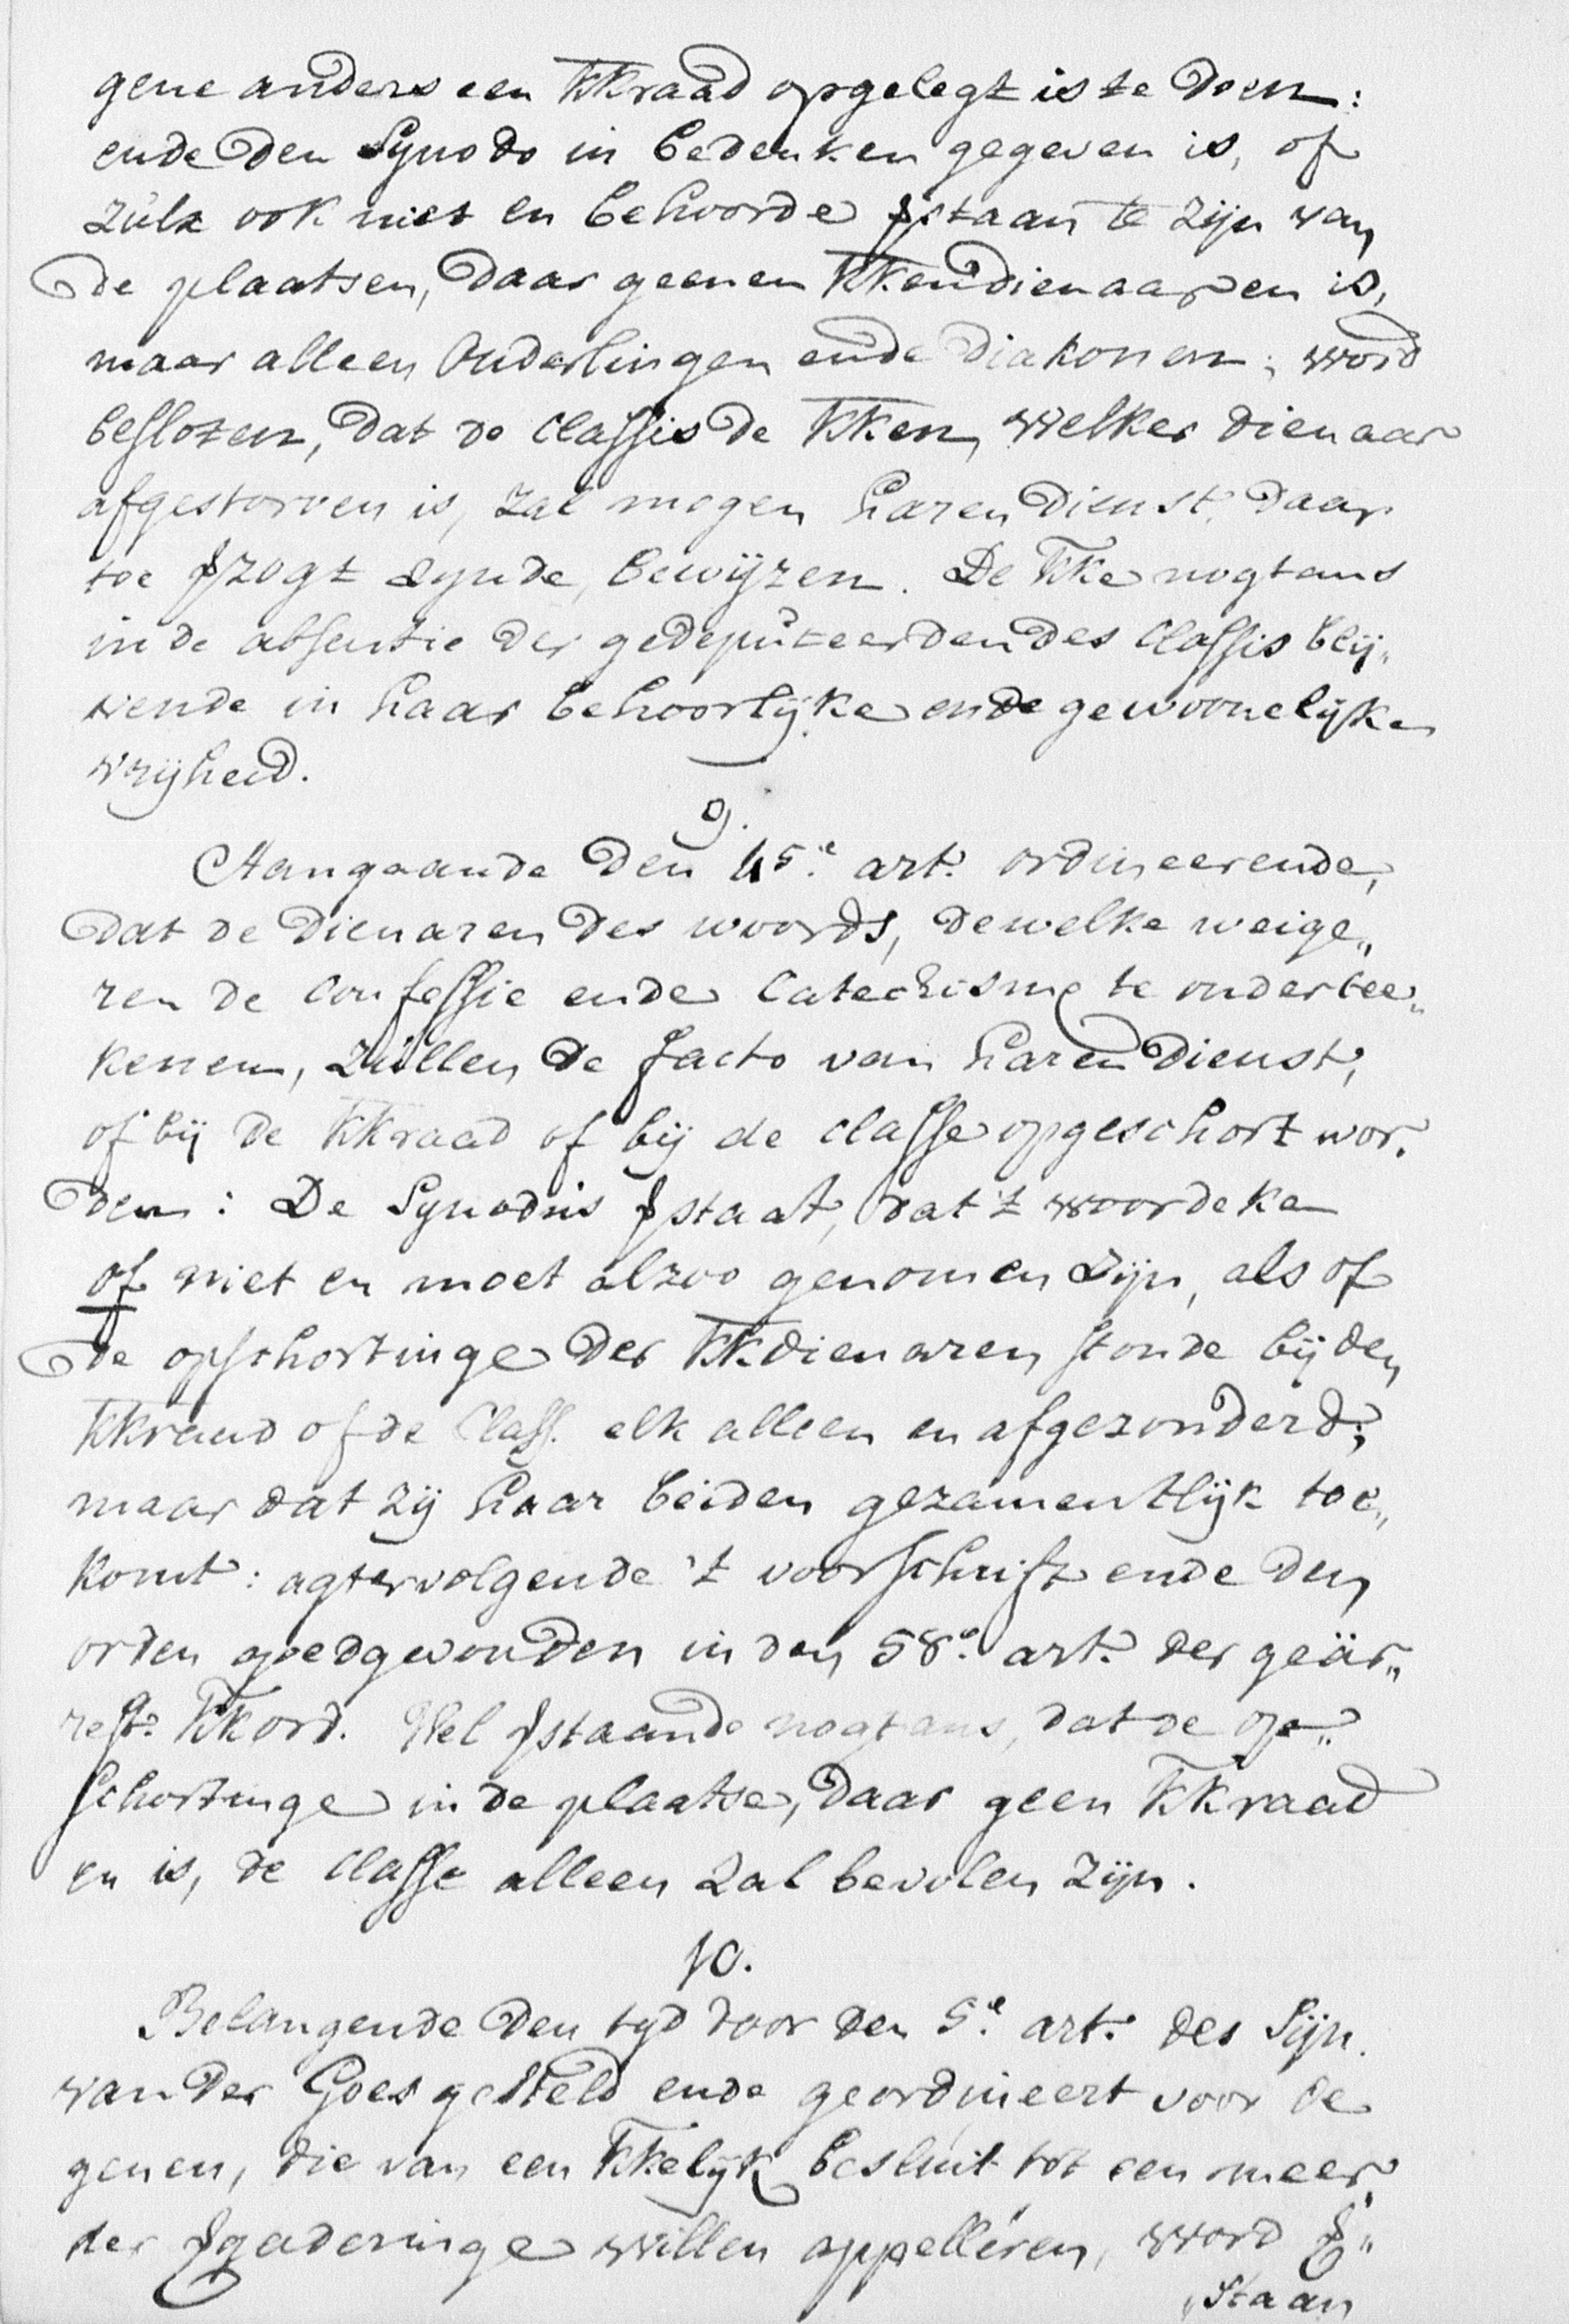 gene anders een KKraad opgelegt is te doen:
ende den Synodo in bedenken gegeven is, of
zulx ook niet en behoorde ꝟstaan te zijn van
de plaatsen, daar geenen KKendienaaren is,
maar alleen Ouderlingen ende Diakonen; word
besloten, dat de Classis de KKen, welker dienaar
afgestorven is, zal mogen haren dienst, daar
toe ꝟzogt zynde, bewijzen. De KKe nogtans
in de absentie der gedeputeerden des Classis blij„
vende in haar behoorlijke ende gewoonelijke
vrijheid.
9.
Aangaande den 45.e art. ordineerende,
dat de Dienaren des woords, dewelke weige„
ren de Confessie ende Catechisme te ondertee„
kenen, zullen de facto van haren dienst,
of bij de KKraad of bij de classe opgeschort wor„
den: De Synodus ꝟstaat, dat 't woordeken
of niet en moet alzoo genomen zijn, als of
de opschortinge der KKdienaren stonde bij den
KKraad of de Class. elk alleen en afgezonderd;
maar dat zij haar beiden gezamentlijk toe„
komt: agtervolgende 't voorschrift ende den
orden goedgevonden in den 58.e art. der geär„
rest. KKord. Wel ꝟstaande nogtans, dat de op„
schortinge in de plaatse, daar geen KKraad
en is, de classe alleen zal bevolen zijn.
10.
Belangende den tyd door den 5.e art. des Sijn.
van der Goes gesteld ende geordineert voor de
genen, die van een KKelijk besluit tot een meer„
der ꝟgaderinge willen appelléren, word ꝟ„
staan